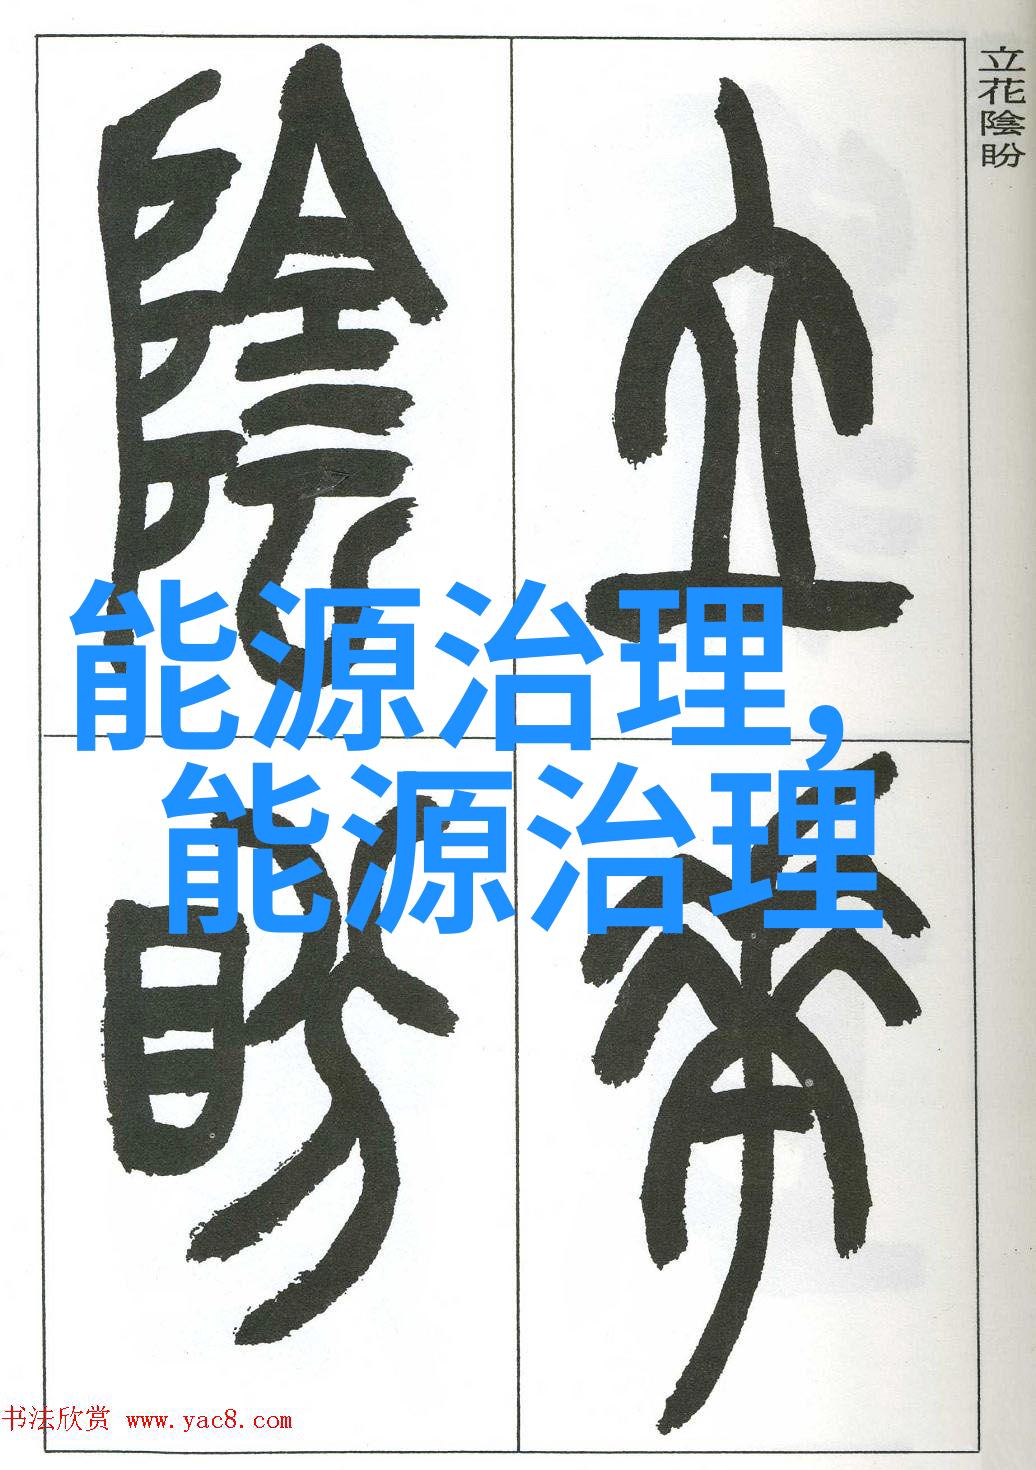 立花陰盼
立花
陰盼
能源治理,
能源治理
书法欣赏 www.yac8.com